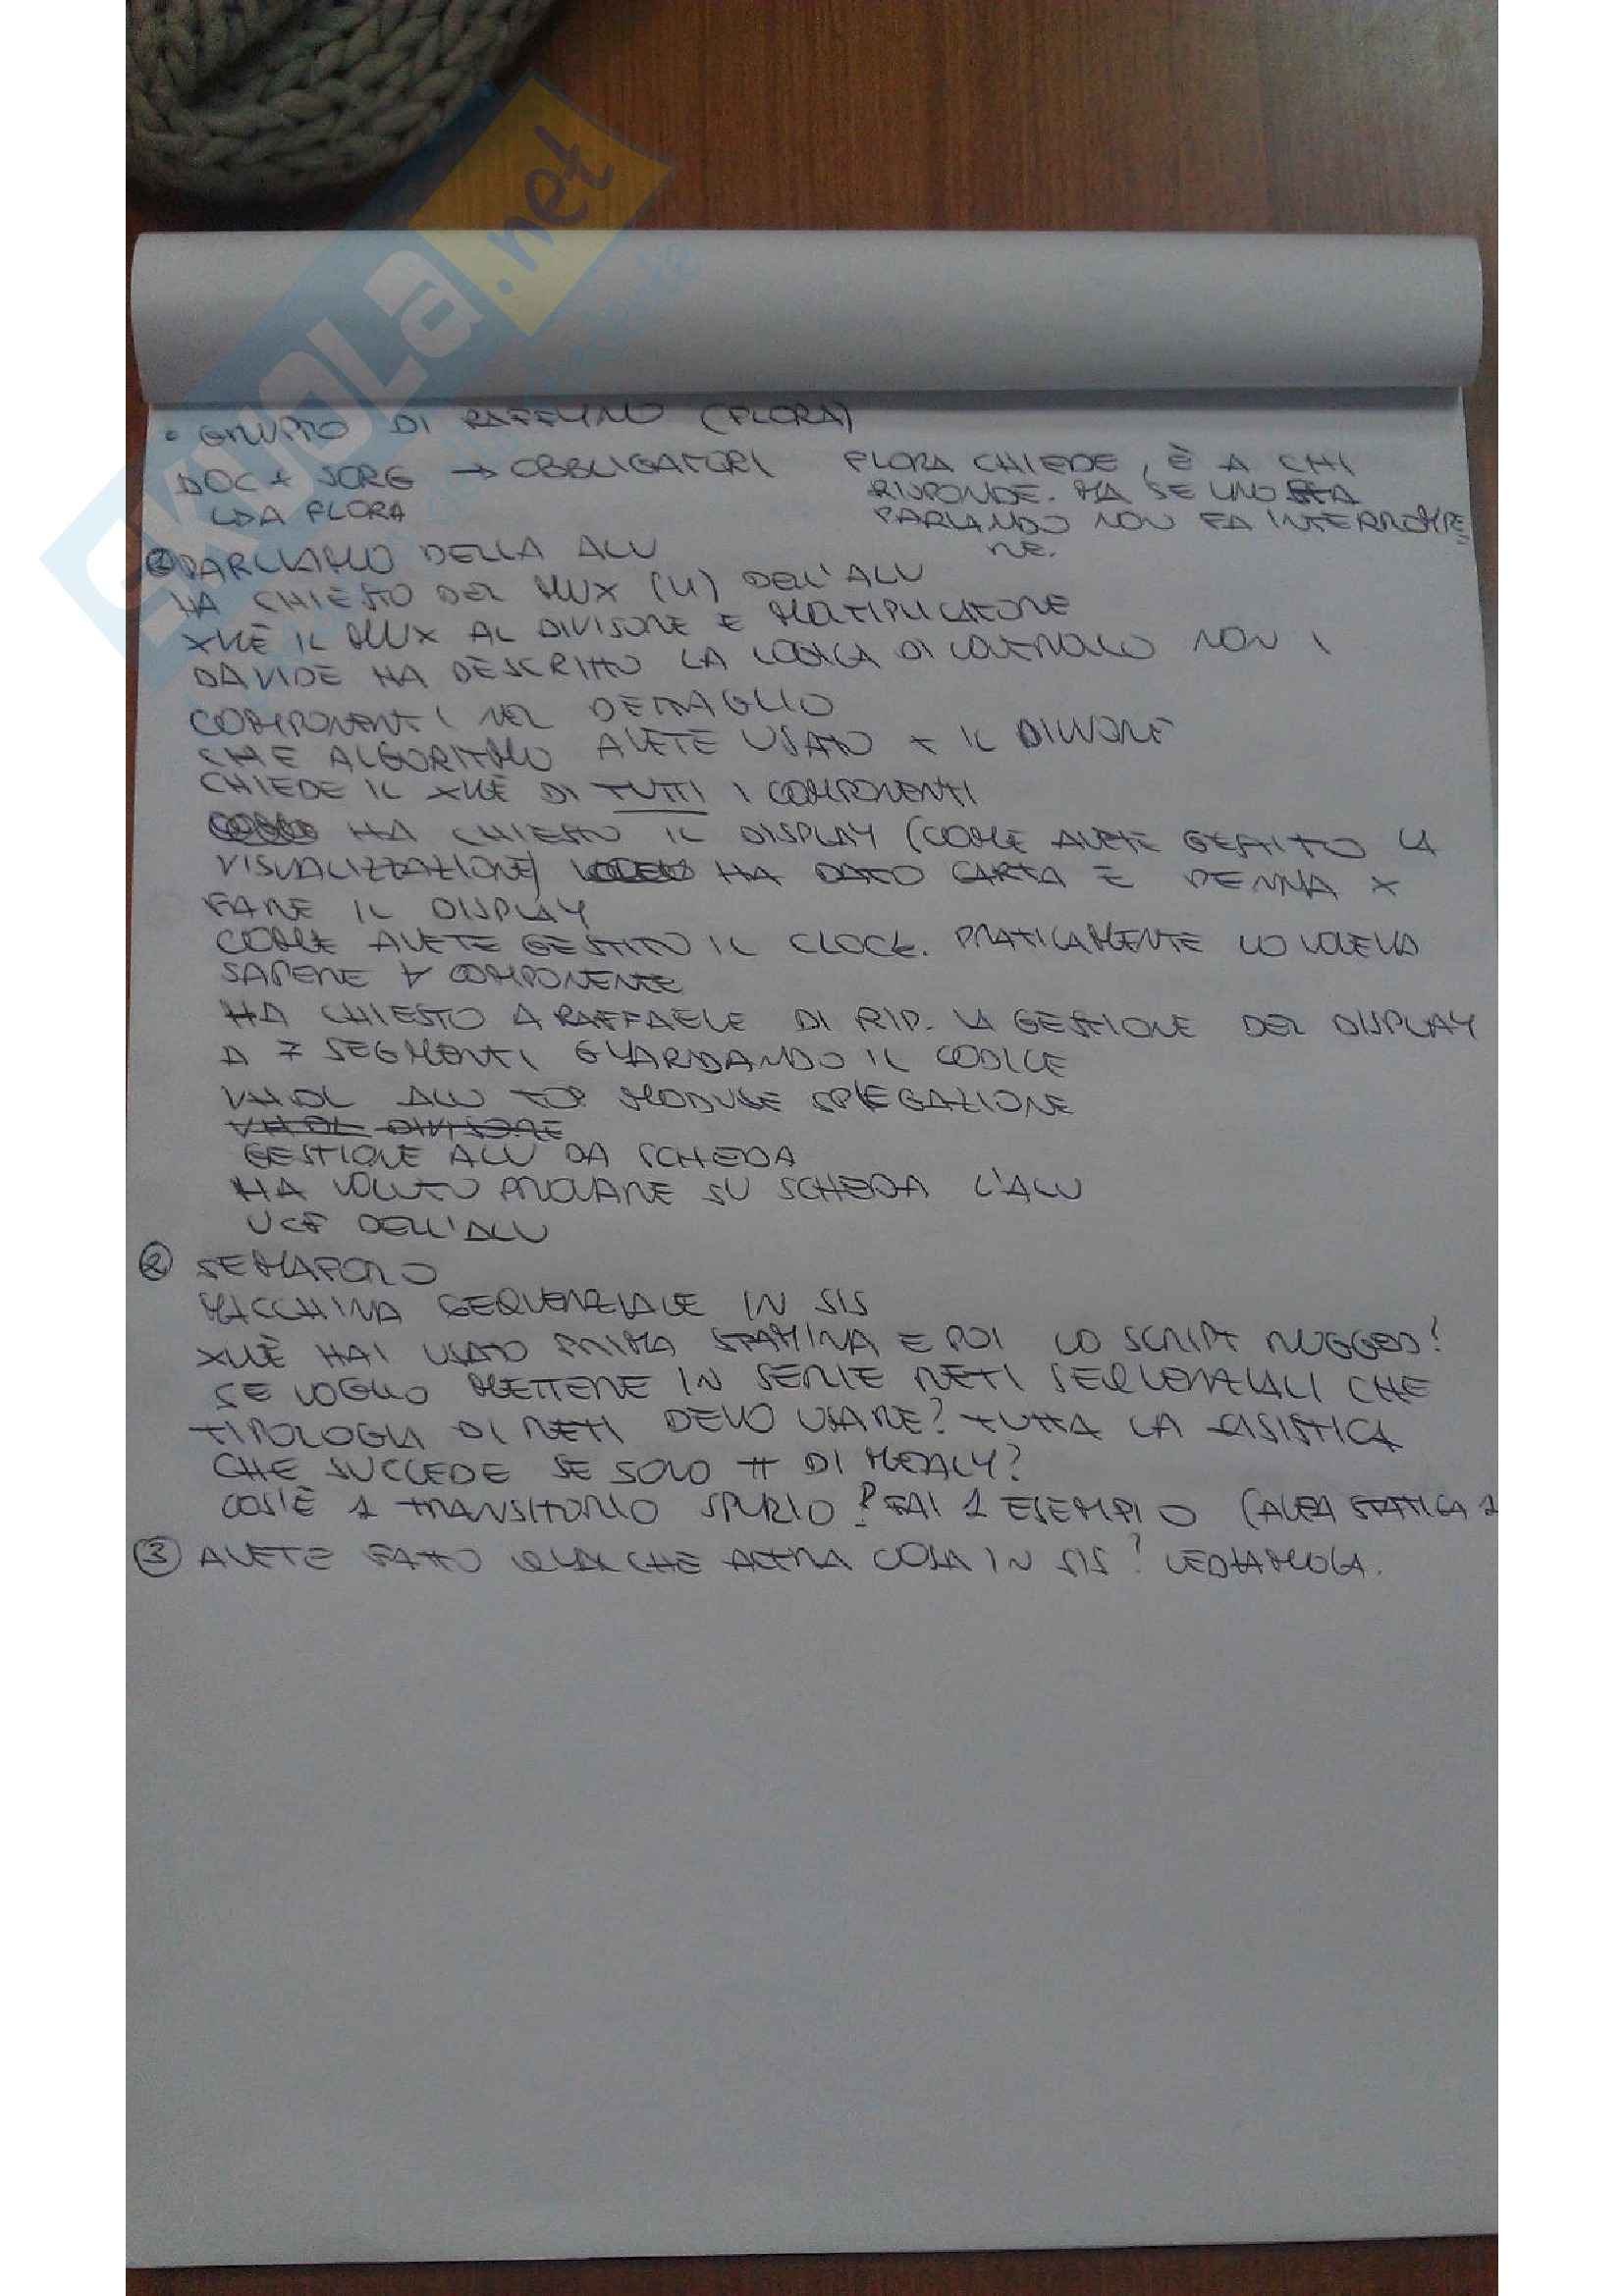 SKUOLa.net
• GRUPPO DI RAFFILINO (FLORA)
DOC + SORG → OBBLIGATORI
↳DA FLORA
FLORA CHIEDE, È A CHI
RISPONDE. MA SE UNO STA
PARLANDO NON FA INTERROMPE
RE.
① PARLIAMO DELLA ALU
HA CHIESTO DEL MUX (4) DELL'ALU
XKÈ IL MUX AL DIVISORE E MOLTIPLICATORE
DAVIDE HA DESCRITTO LA LOGICA DI CONTROLLO NON I
COMPONENTI NEL DETTAGLIO
CHE ALGORITMO AVETE USATO X IL DIVISORE
CHIEDE IL XKÈ DI TUTTI I COMPONENTI
HA CHIESTO IL DISPLAY (COME AVETE GESTITO LA
VISUALIZZAZIONE) HA DATO CARTA E PENNA X
FARE IL DISPLAY
COME AVETE GESTITO IL CLOCK. PRATICAMENTE LO VOLEVA
SAPERE ∀ COMPONENTE
HA CHIESTO A RAFFAELE DI RIP. LA GESTIONE DEL DISPLAY
A 7 SEGMENTI GUARDANDO IL CODICE
VHDL ALU TOP MODULE SPIEGAZIONE
VHDL DIVISORE
GESTIONE ALU DA SCHEDA
HA VOLUTO PROVARE SU SCHEDA L'ALU
UCF DELL'ALU
② SEMAFORO
MACCHINA SEQUENZIALE IN SIS
XKÈ HAI USATO PRIMA STAMINA E POI LO SCRIPT RUGGED?
SE VOGLIO METTERE IN SERIE RETI SEQUENZIALI CHE
TIPOLOGIA DI RETI DEVO USARE? TUTTA LA CASISTICA
CHE SUCCEDE SE SONO TT DI MEALY?
COS'È 1 TRANSITORIO SPURIO? FAI 1 ESEMPIO (ALEA STATICA 1
③ AVETE FATTO QUALCHE ALTRA COSA IN SIS? VEDIAMOLA.